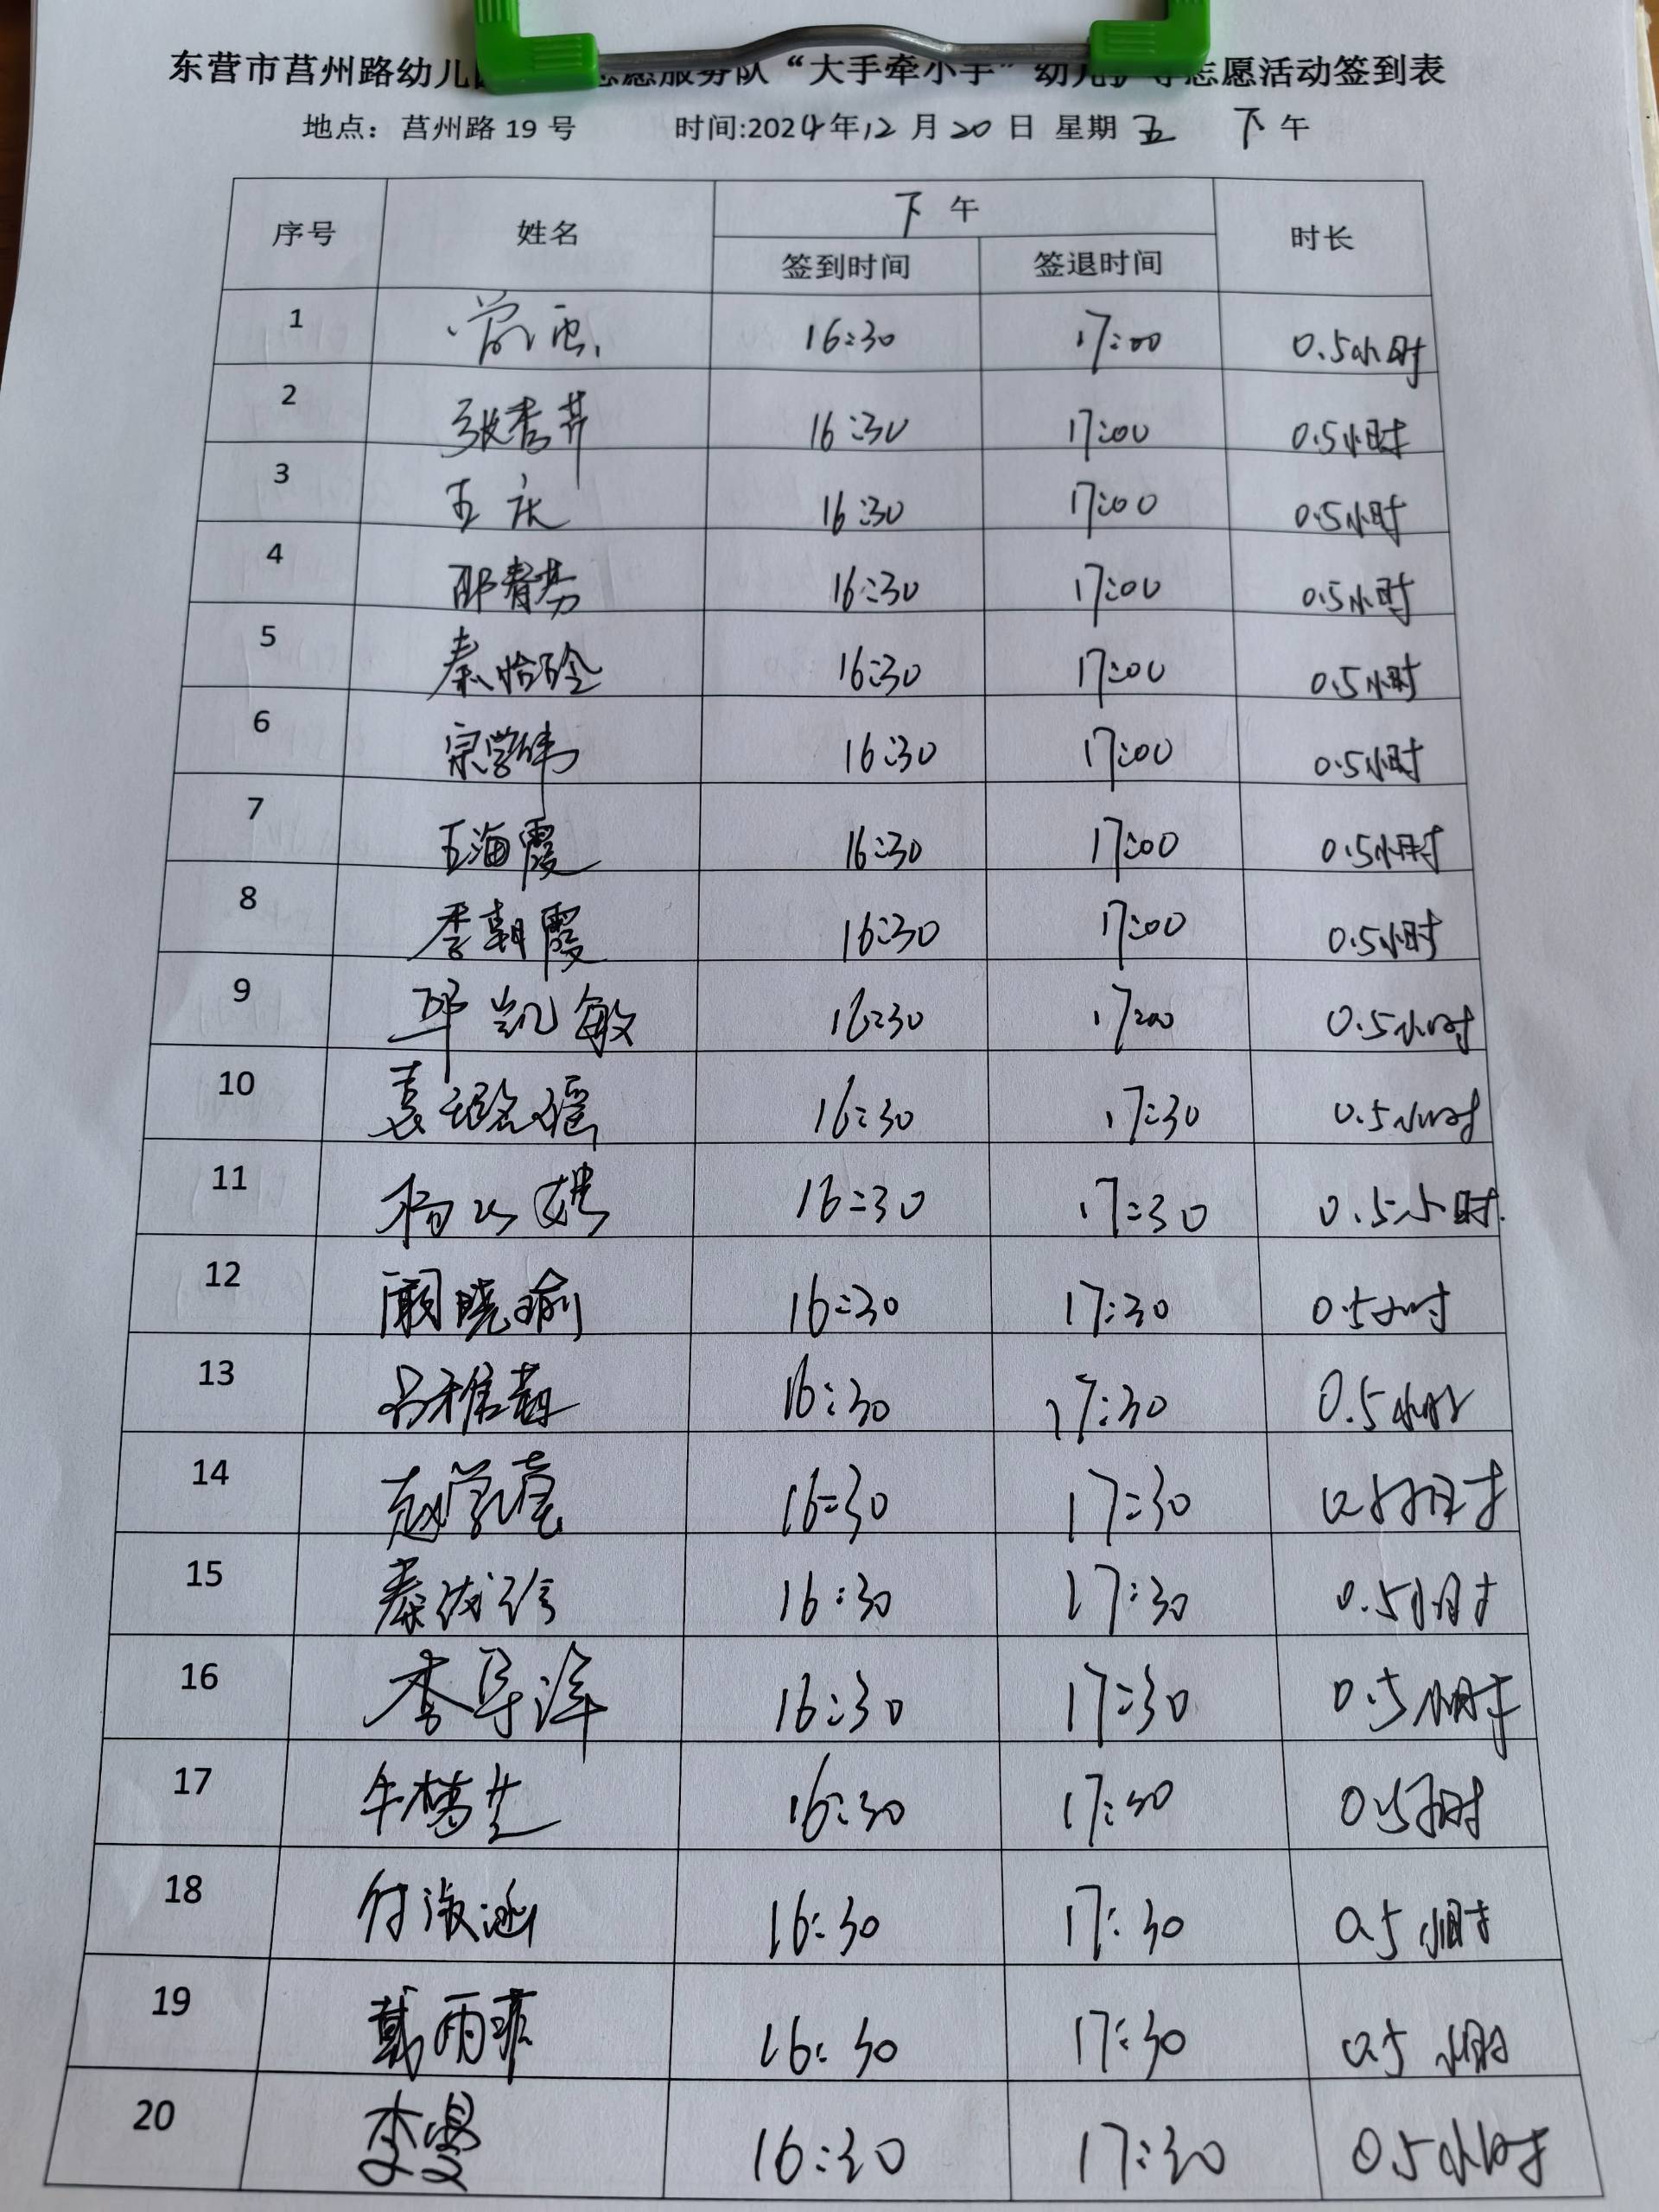 东营市莒州路幼儿 志愿服务队“大手牵小手”幼儿护导志愿活动签到表
地点：莒州路 19 号 时间:2024年12月20日 星期五 下午
序号 姓名 下午 时长
签到时间 签退时间
1 16:30 17:00 0.5小时
2 张秀芹 16:30 17:00 0.5小时
3 王庆 16:30 17:00 0.5小时
4 邵春芬 16:30 17:00 0.5小时
5 秦怡玲 16:30 17:00 0.5小时
6 宗学伟 16:30 17:00 0.5小时
7 王海霞 16:30 17:00 0.5小时
8 李朝霞 16:30 17:00 0.5小时
9 毕凯敏 16:30 17:00 0.5小时
10 袁璐瑶 16:30 17:30 0.5小时
11 杨 16:30 17:30 0.5小时
12 顾晓瑜 16:30 17:30 0.5小时
13 吕雅 16:30 17:30 0.5小时
14 赵学莹 16:30 17:30 0.5小时
15 秦 16:30 17:30 0.5小时
16 李 洋 16:30 17:30 0.5小时
17 牛 芝 16:30 17:30 0.5小时
18 付淑涵 16:30 17:30 0.5小时
19 戴雨菲 16:30 17:30 0.5小时
20 李曼 16:30 17:30 0.5小时